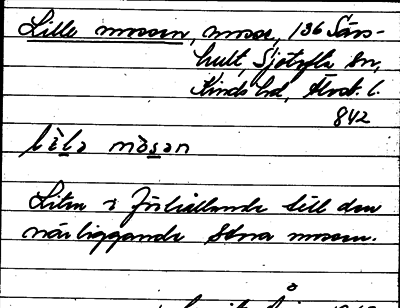 Lille mossen, mosse, 136 Sävs-
hult, Sjötofta sn,
Kinds hd, Älvsb. l.
842
lìla mòsan
Liten i förhållande till den
närliggande Stora mossen.